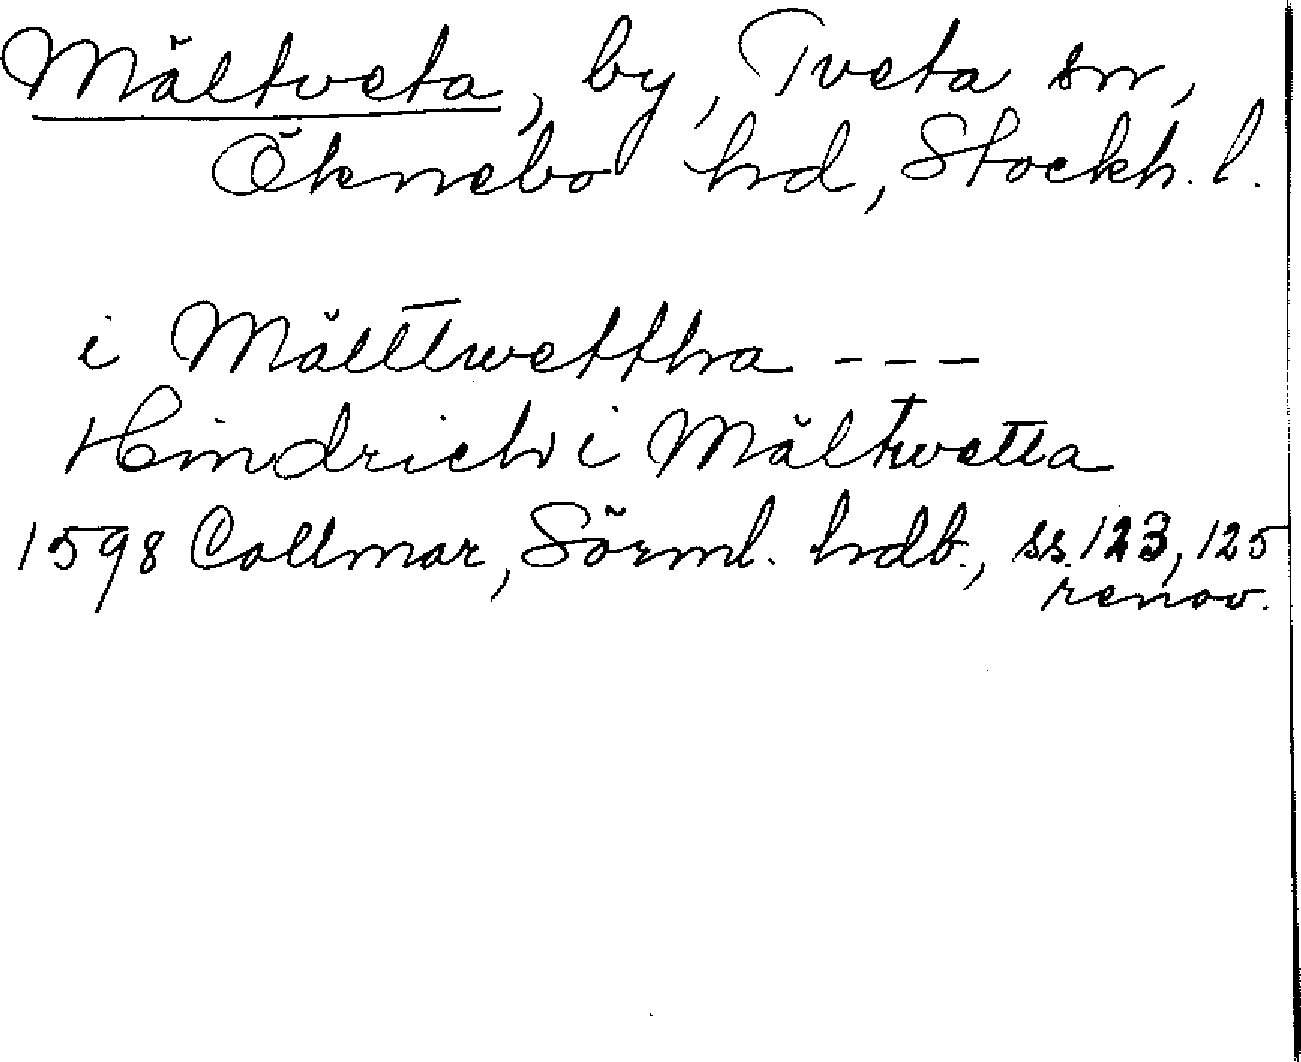 Mältveta, by, Tveta sn,
Öknebo hd, Stockh. l.
i Mälltwetthra - - -
Hindrich i Mältwetta
1598 Collmar, Sörml. hdb., ss. 123, 125
renov.